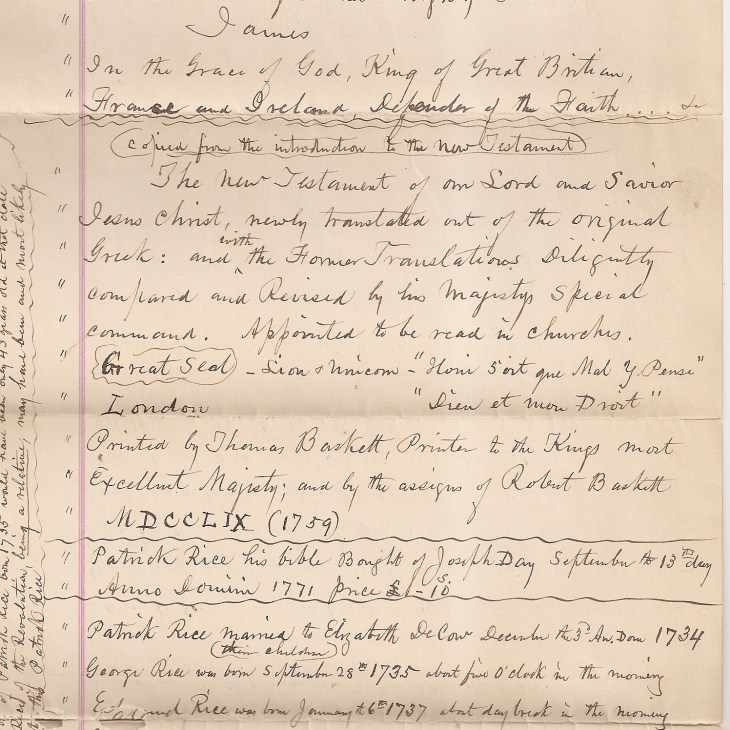 " James
" In the Grace of God, King of Great Britian,
" France and Ireland, Defender of the Faith .... &c
(copied from the introduction to the New Testament)
" The New Testament of our Lord and Savior
" Jesus Christ, newly translated out of the original
" Greek: and with the Former Translations Diligintly
" compared and Revised by his Majestys Special
" command. Appointed to be read in churches.
" Great Seal - Lion & Unicorn - "Honi Soit que Mal Y Pense"
" London "Dieu et mon Droit"
" Printed by Thomas Baskett, Printer to the Kings most
" Excellent Majesty; and by the assigns of Robert Baskett
" MDCCLIX (1759)
" Patrick Rice his bible Bought of Joseph Day September the 13th day
" Anno Domini 1771 price £1-10s.
" Patrick Rice married to Elizabeth DeCow December the 3d An. Dom 1734
(their children)
" George Rice was born September 28th 1735 about five O'clock in the morning
" Rice was born January the 6th 1737 about day break in the morning
Patrick Rice born 1735 would have been only 43 years old at that date
of the Revolution, being a relative, may have been and most likely
this Patrick Rice